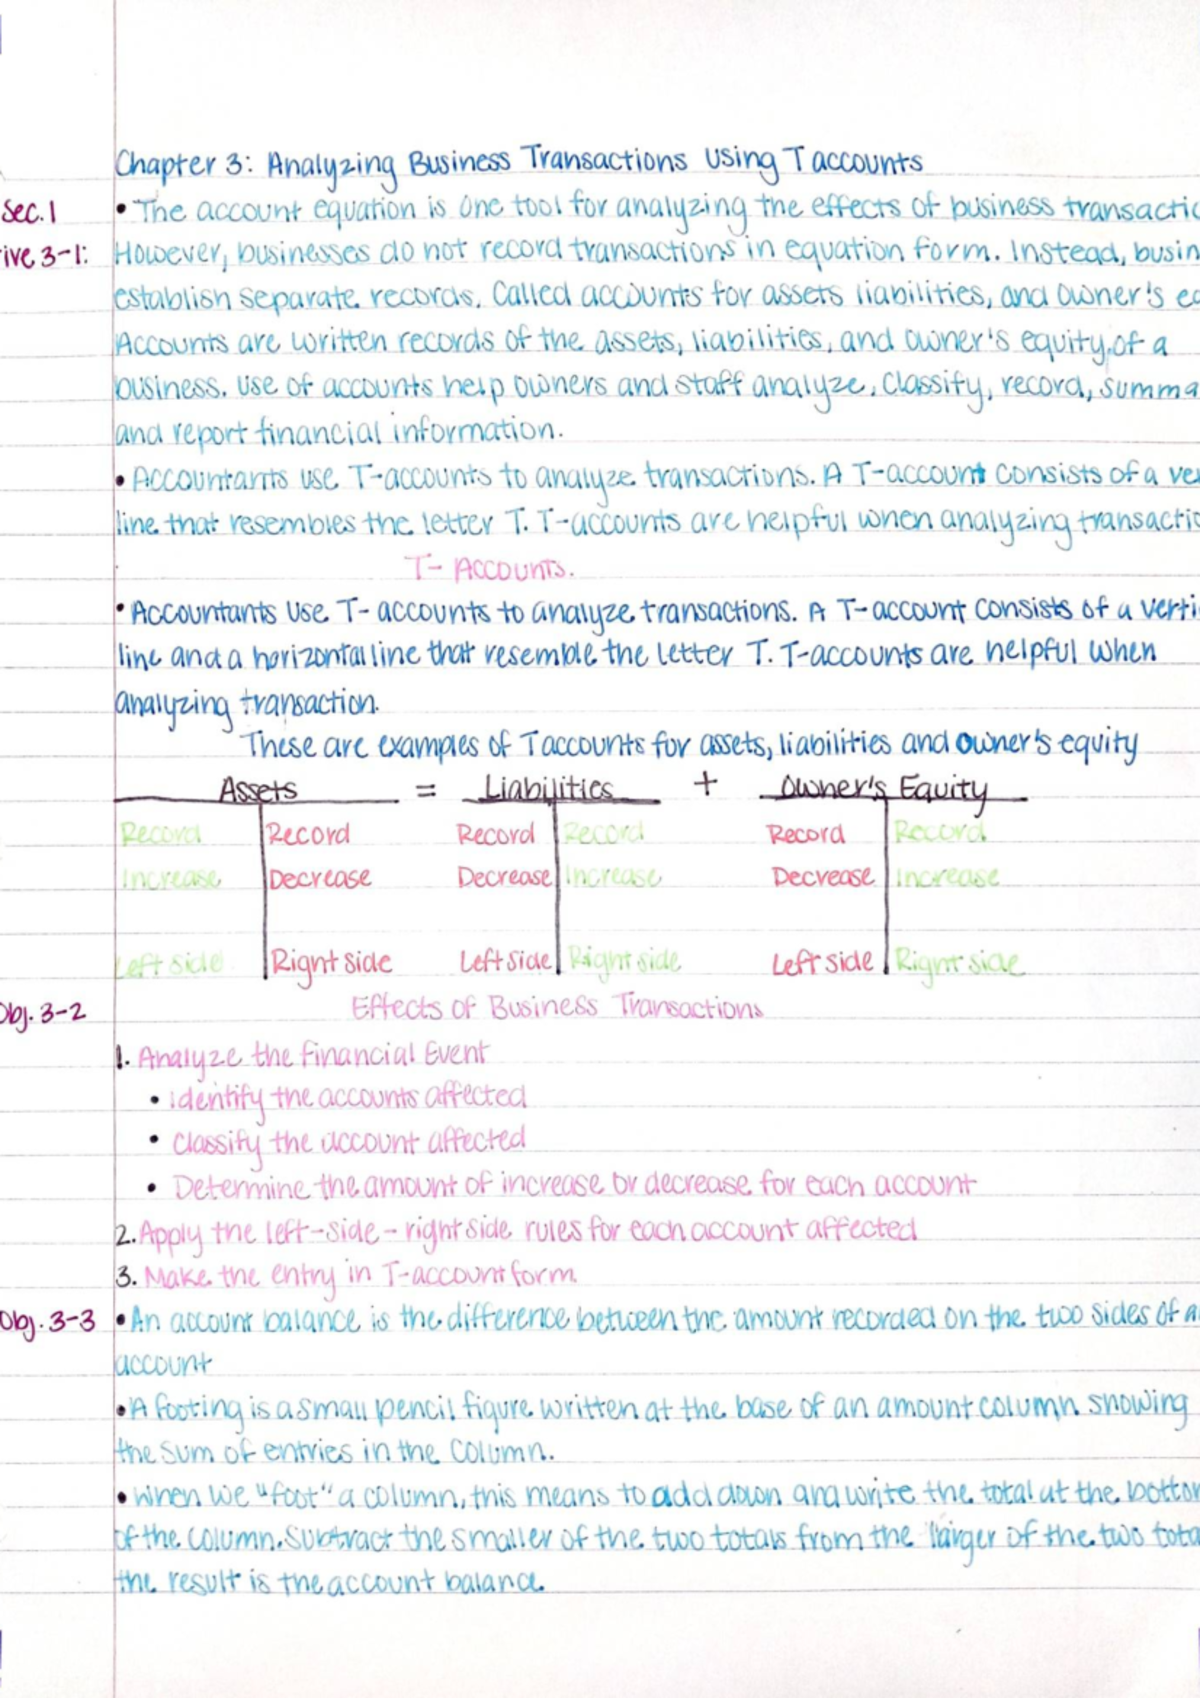 Chapter 3: Analyzing Business Transactions Using T accounts
Sec. 1 • The account equation is one tool for analyzing the effects of business transactio
ive 3-1: However, businesses do not record transactions in equation form. Instead, busin
establish separate records. Called accounts for assets liabilities, and owner's eq
Accounts are written records of the assets, liabilities, and owner's equity, of a
business. Use of accounts help owners and staff analyze, Classify, record, summa
and report financial information.
• Accountants use T-accounts to analyze transactions. A T-account consists of a ver
line that resembles the letter T. T-accounts are helpful when analyzing transactio
T- Accounts.
• Accountants Use T- accounts to analyze transactions. A T-account consists of a verti
line and a horizontal line that resemble the letter T. T-accounts are helpful when
analyzing transaction.
These are examples of T accounts for assets, liabilities and owner's equity
Assets = Liabilities + Owner's Equity
Record Record Record Record Record Record
Increase Decrease Decrease Increase Decrease Increase
Left side Right side Left side Right side Left side Right side
Obj. 3-2 Effects of Business Transactions
1. Analyze the financial Event
• identify the accounts affected
• classify the account affected
• Determine the amount of increase or decrease for each account
2. Apply the left-side-right side rules for each account affected
3. Make the entry in T-account form
Obj. 3-3 • An account balance is the difference between the amount recorded on the two sides of a
account
• A footing is a small pencil figure written at the base of an amount column showing
the sum of entries in the column.
• When we "foot" a column, this means to add down and write the total at the bottom
of the column. Subtract the smaller of the two totals from the larger of the two tota
the result is the account balance